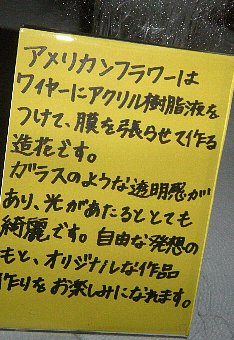 アメリカンフラワーは
ワイヤーにアクリル樹脂液を
つけて、膜を張らせて作る
造花です。
ガラスのような透明感が
あり、光があたるととても
綺麗です。自由な発想の
もと、オリジナルな作品
作りをお楽しみになれます。